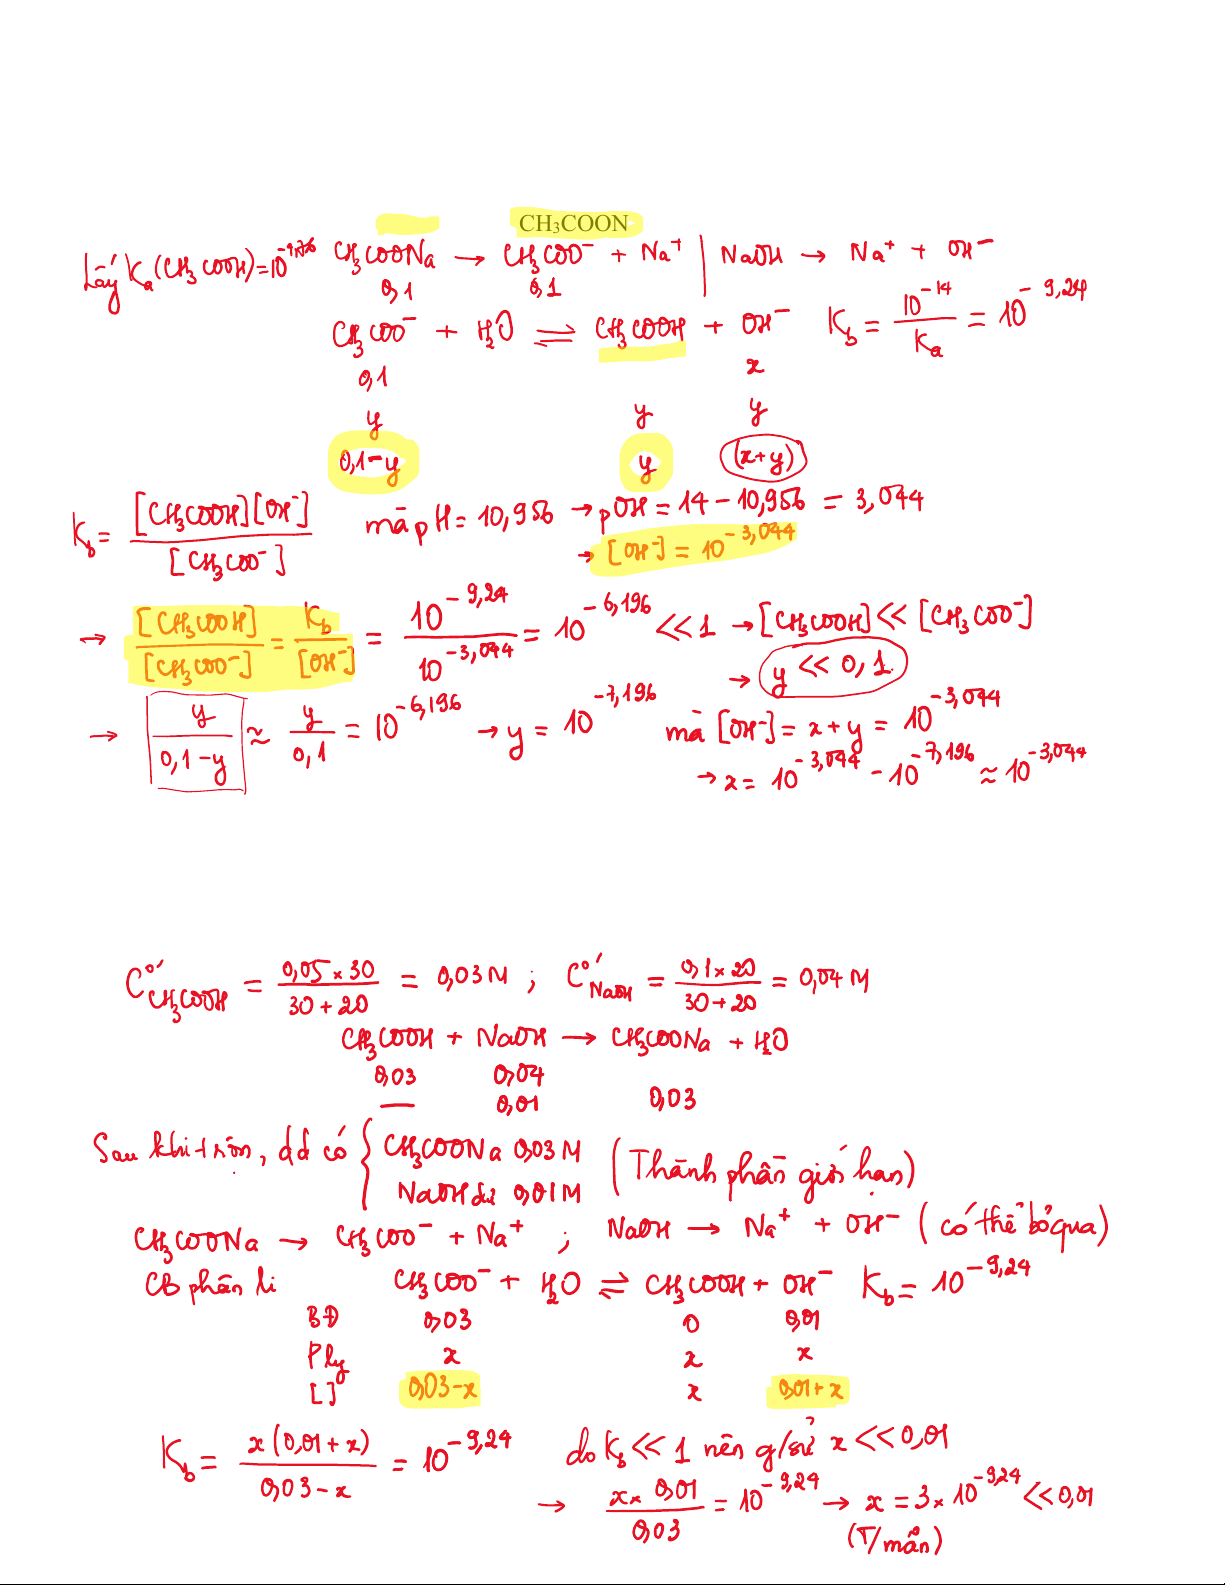 CH₃COON
Lấy Kₐ(CH₃COOH)=10^-4,76 CH₃COONa → CH₃COO⁻ + Na⁺ | NaOH → Na⁺ + OH⁻
0,1 0,1
CH₃COO⁻ + H₂O ⇌ CH₃COOH + OH⁻ K_b = 10^-14/Kₐ = 10^-9,24
0,1 x
y y y
0,1-y y (x+y)
K_b = [CH₃COOH][OH⁻]/[CH₃COO⁻] mà pH = 10,956 → pOH = 14 - 10,956 = 3,044
→ [OH⁻] = 10^-3,044
→ [CH₃COOH]/[CH₃COO⁻] = K_b/[OH⁻] = 10^-9,24/10^-3,044 = 10^-6,196 << 1 → [CH₃COOH] << [CH₃COO⁻]
→ y << 0,1
→ y/(0,1-y) ≈ y/0,1 = 10^-6,196 → y = 10^-7,196 mà [OH⁻] = x+y = 10^-3,044
→ x = 10^-3,044 - 10^-7,196 ≈ 10^-3,044
C°'_CH₃COOH = (0,05×30)/(30+20) = 0,03M ; C°'_NaOH = (0,1×20)/(30+20) = 0,04M
CH₃COOH + NaOH → CH₃COONa + H₂O
0,03 0,04
— 0,01 0,03
Sau khi trộn, dd có { CH₃COONa 0,03M (Thành phần giới hạn)
NaOH dư 0,01M
CH₃COONa → CH₃COO⁻ + Na⁺ ; NaOH → Na⁺ + OH⁻ (có thể bỏ qua)
CB phân li CH₃COO⁻ + H₂O ⇌ CH₃COOH + OH⁻ K_b = 10^-9,24
BĐ 0,03 0 0,01
Ply x x x
[ ] 0,03-x x 0,01+x
K_b = x(0,01+x)/(0,03-x) = 10^-9,24 do K_b << 1 nên g/sử x << 0,01
→ (x×0,01)/0,03 = 10^-9,24 → x = 3×10^-9,24 << 0,01
(T/mãn)